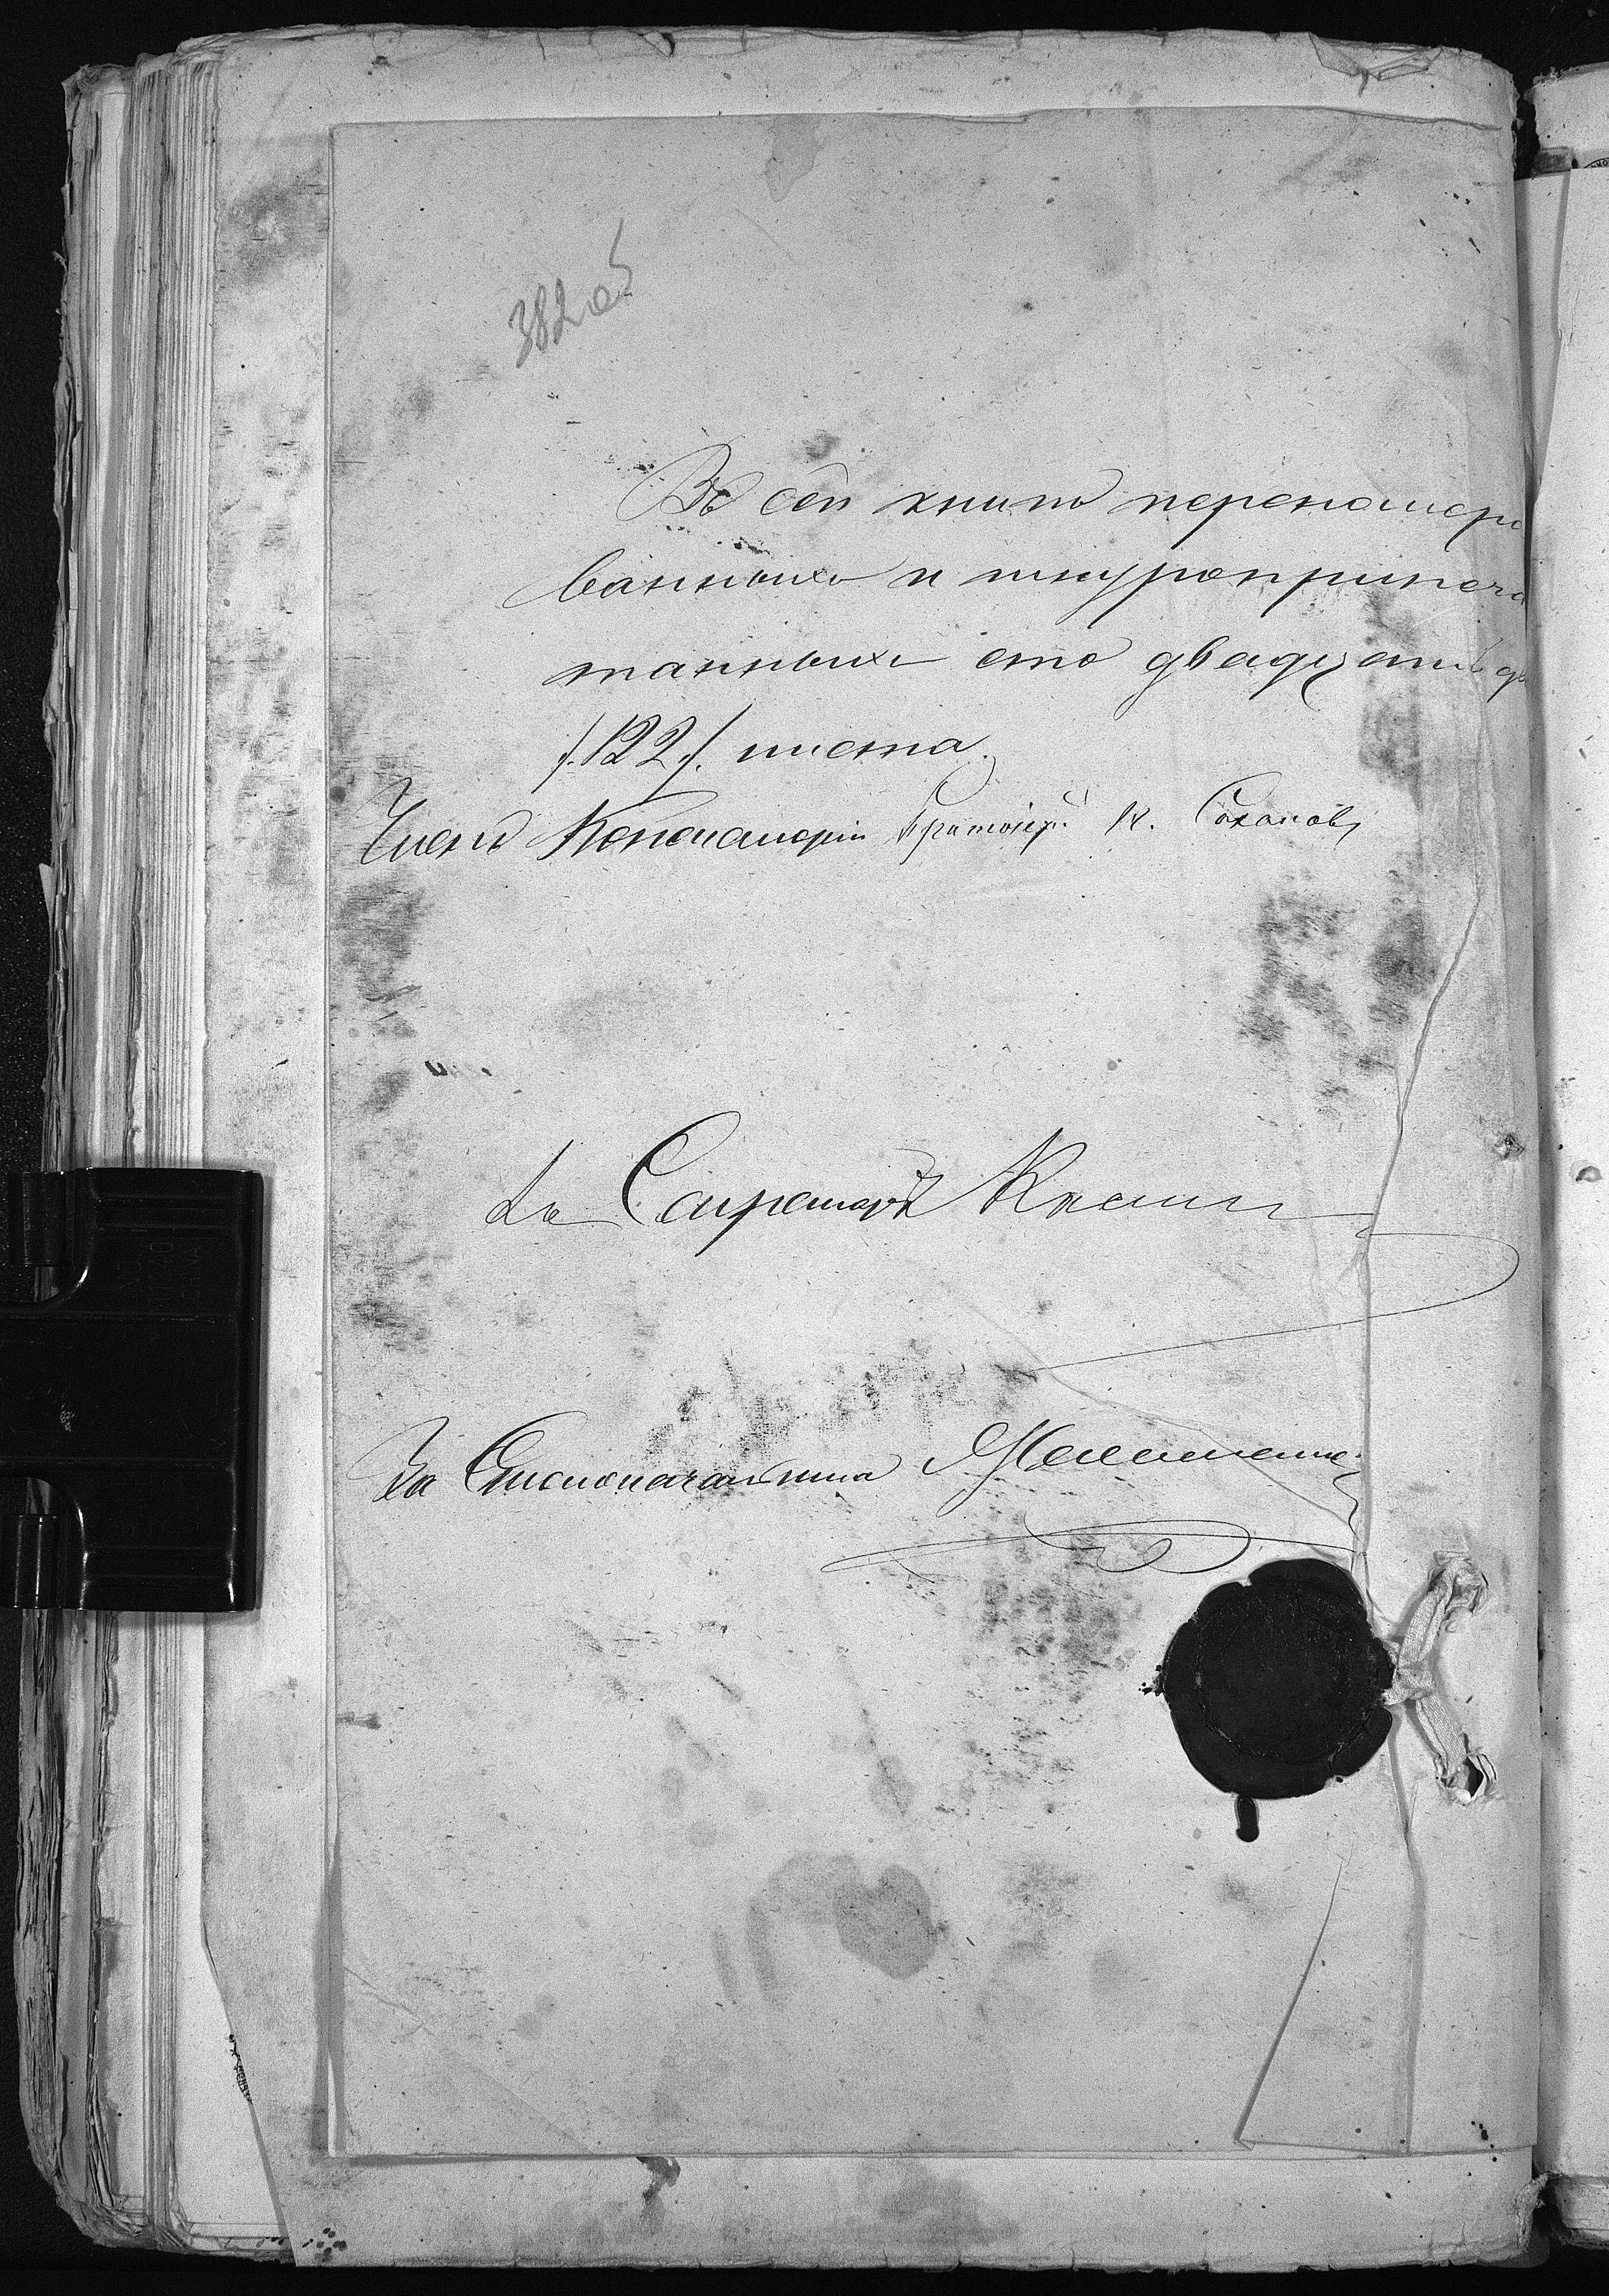 382об
Въ сей книгѣ перенумеро
ванныхъ и шнуроприпеча
танныхъ сто двадцать дв
/.122./. листа.
Членъ Консисторіи Протоіер. К.
За Секретаря
За Столоначальника